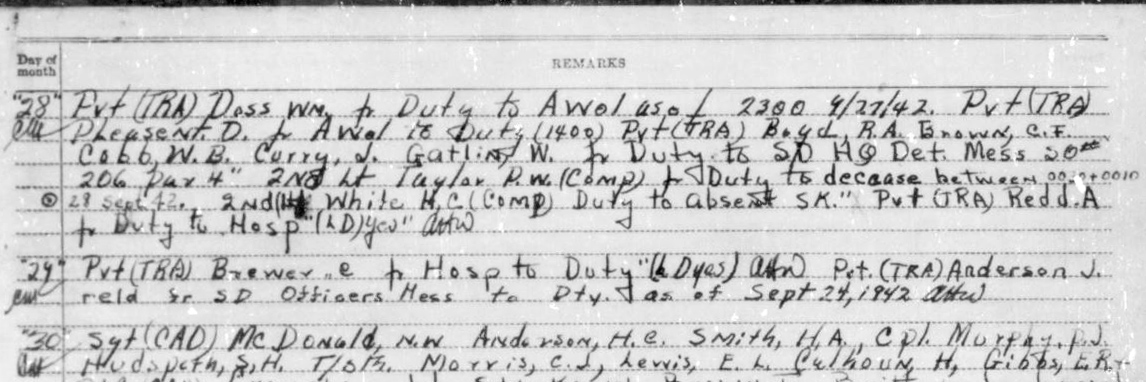 Day of
month
REMARKS
"28" Pvt (TRA) Doss Wm, fr Duty to AWol as of 2300 9/27/42. Pvt (TRA)
Pleasent. D. fr AWol to Duty (1400) Pvt (TRA) Boyd, R.A. Brown, C.F.
Cobb, W.B. Curry, J. Gatling W. fr Duty to SD HQ Det. Mess SO
206 Par 4" 2Nd Lt Taylor P.W. (Comp) fr Duty to decease between
28 Sept 42. 2Nd Lt White H, C (Comp) Duty to absent SK." Pvt (TRA) Redd. A
fr Duty to Hosp "(LD) yes"
"29" Pvt (TRA) Brewer fr Hosp to Duty" (LD yes) Pvt. (TRA) Anderson J.
reld fr SD Officers Mess to Dty. as of Sept 24, 1942
"30" Sgt (CAD) McDonald, N.W Anderson, H.C. Smith, H.A., Cpl. Murphy, P.J.
Hudspeth, S.H. T/5th. Morris, C.J, Lewis, E.L. Calhoun, H, Gibbs, E.R.